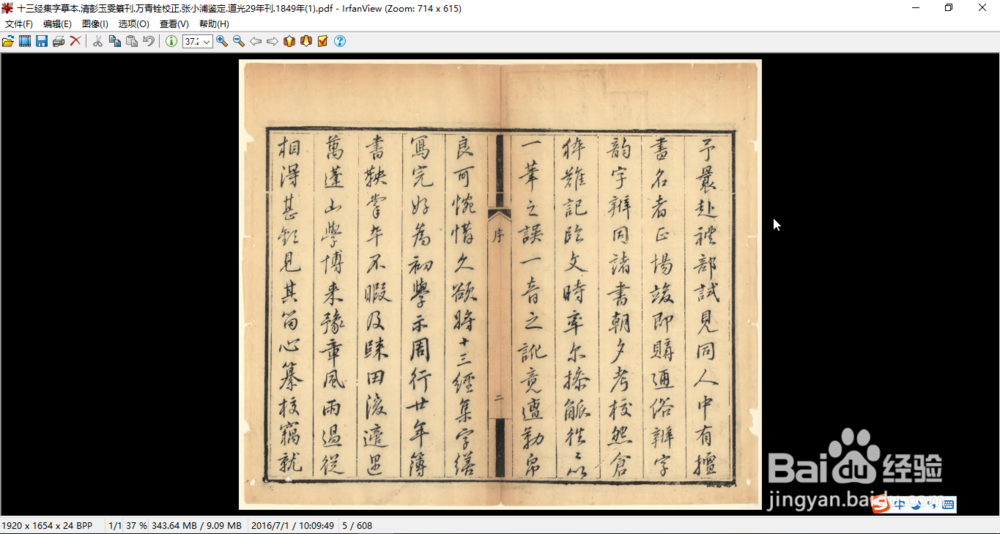 十三经集字摹本.清彭玉雯纂刊.万青铨校正.张小浦鉴定.道光29年刊.1849年(1).pdf - IrfanView (Zoom: 714 x 615)
文件(F) 编辑(E) 图像(I) 选项(O) 查看(V) 帮助(H)
37.
予最赴禮部試見同人中有擅
書名者正場竣即購通俗辨字
韵字辨同諸書朝夕考校然倉
猝難記臨文時率尔操觚往往以
一筆之誤一音之訛竟遭勒帛
序
二
良可惋惜久欲將十三經集字繕
寫完好為初學示周行廿年簿
書鞅掌卒不暇及昧田
萬蓬山學博来豫章風雨過從
相得甚見其留心纂校竊就
Baidu经验
jingyan.baidu.com
中
1920 x 1654 x 24 BPP 1/1 37 % 343.64 MB / 9.09 MB 2016/7/1 / 10:09:49 5 / 608